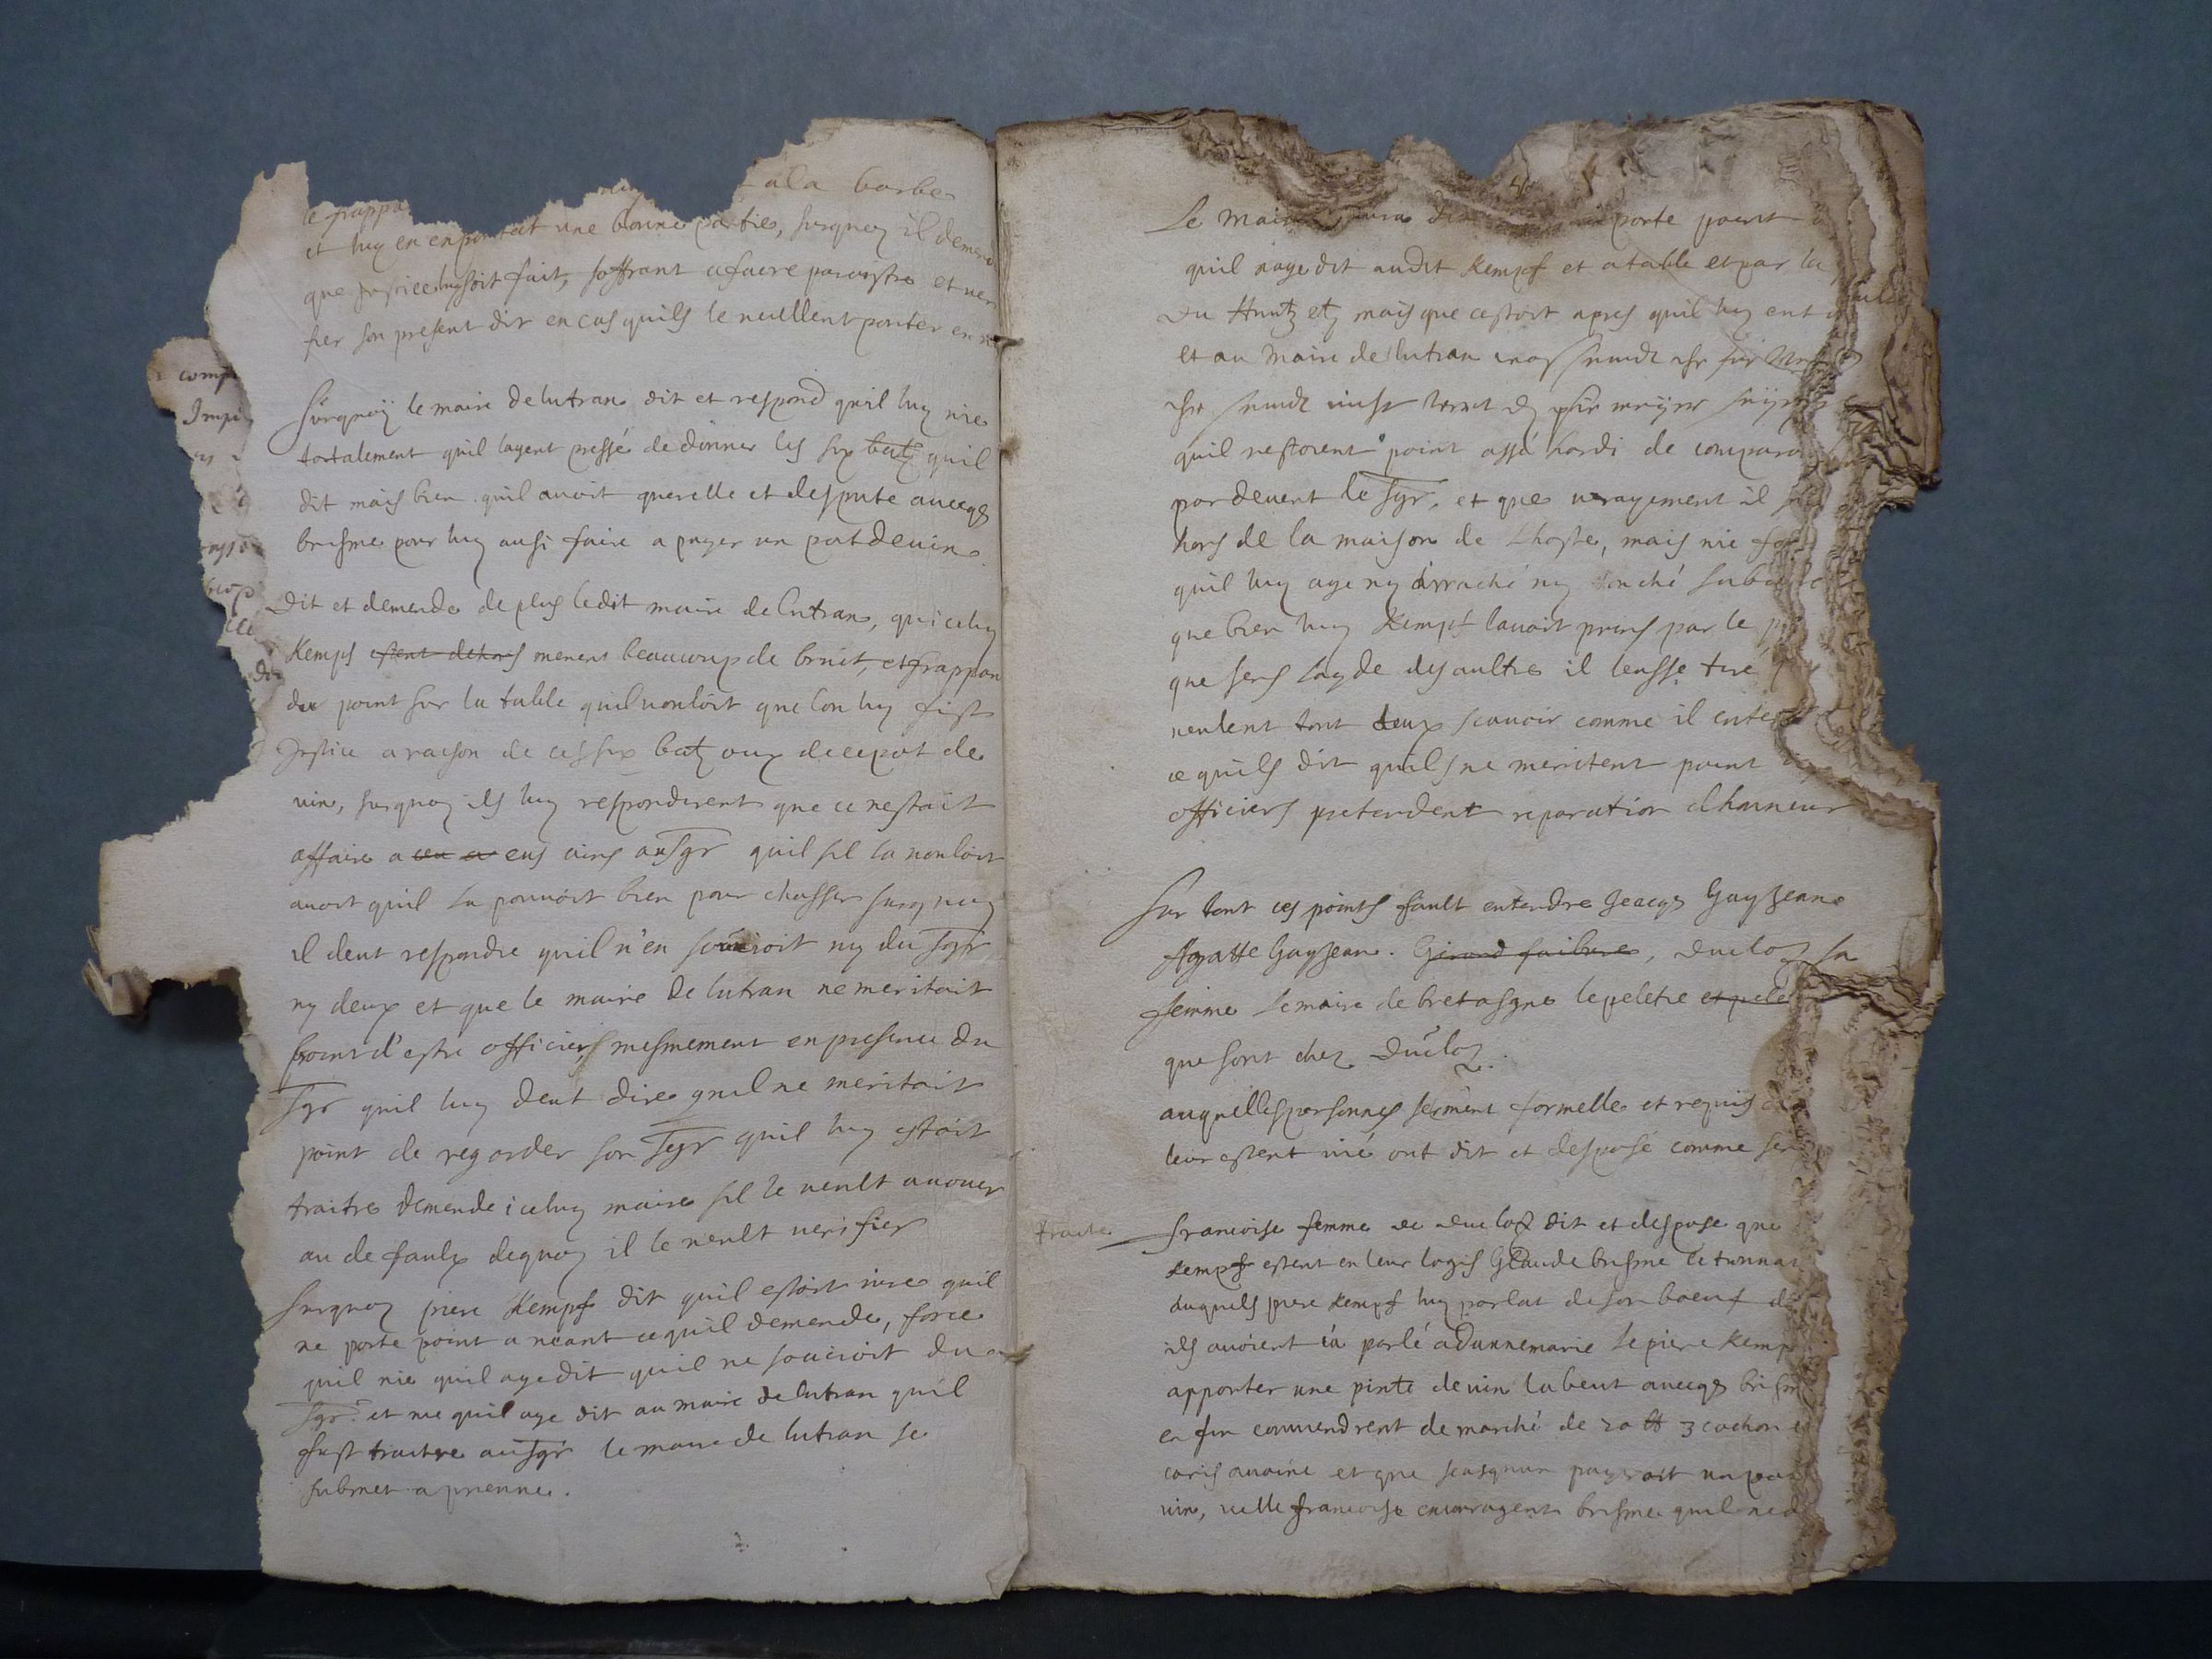 le frappa a la barbe
et luy en enportat une bonne partie, surquoy il demend
que justice luy soit fait, soffrant a faire paroistre et veri
fier son present dit en cas quils le veullent porter en
Surquoÿ le maire de lutran dit et respond quil luy nie
tortalement quil layent pressé de donner les six batz quil
dit mais bien quil avoit querelle et despute avecqs
brisme pour luy ausi faire a payer un pat de vin
Dit et demende de plus ledit maire de lutran, qu'iceluy
Kempf estent dehors menent beaucoup de bruit, et frappan
du point sur la table quil vouloit que lon luy fist
Justice a raison de ces six batz oux de ce pot de
vin, surquoy ils luy responderent que ce nestoit
affaire a eus ains au sgr quil sil la vouloit
avoit quil la pouvoit bien pour chasser surquoy
il deut respondre quil n'en soucioit ny du sgr
ny deux et que le maire de lutran ne meritoit
point d'estre officiers mesmement en presence du
sgr quil luy deut dire quil ne meritoit
point de regarder son segr quil luy estoit
traitre demende iceluy maire sil le veult avouer
au de faulx dequoy il le veult verifier
surquoy piere Kempf dit quil estoit ivre quil
ne porte point a néant ce quil demende, force
quil nie quil aye dit quil ne soucioit du
sgr. et nie quil aye dit au maire de lutran quil
fust traitre au sgr le maire de lutran se
submet a prenne.
comp
Impi
Le mai porte point
quil naye dit audit Kempf et a table et par la
du Huntz etz mais que cestoit apres quil luy eut
et au maire de lutran
quil nestoient point assé hardi de compara
pardevent le sgr, et que vrayement il
hors de la maison de Lhoste, mais nie
quil luy aye ny arraché ny touché sa
que bien luy Kempf lavoit prins par le
que sens layde des aultre il leusse tiré
veulent tout deux scavoir comme il enten
ce quils dit quils ne meritent point
officiers pretendent reparation dhonneur
Sur tout ces points fault entendre Jeacqs Gay Jean
Agatte Gay Jean. Girard , Ducloz sa
femme Le maire de bretagne le peletie
que sont chez Ducloz.
auquelles personnes serment formelle et requis
leur estent nié ont dit et desposé comme
traitre francoise femme de Ducloz dit et despose que
Kempf estent en leur logis Glaude brisme le tunnar
duquels piere Kempf luy parlat de son boeuf
ils avoient ia parlé a Dannemarie le piere Kemp
apporter une pinte de vin la beut avecqs
en fin conviendrent de marché de 20 ℔ 3 cochon
avoine et que scasqun payroit un
vin, celle francoise encorragent brisme quil